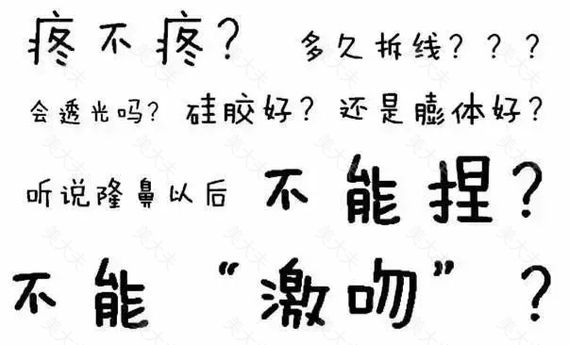 疼不疼? 多久拆线? ? ?
会透光吗? 硅胶好? 还是膨体好?
听说隆鼻以后 不能捏?
不能 “激吻” ?